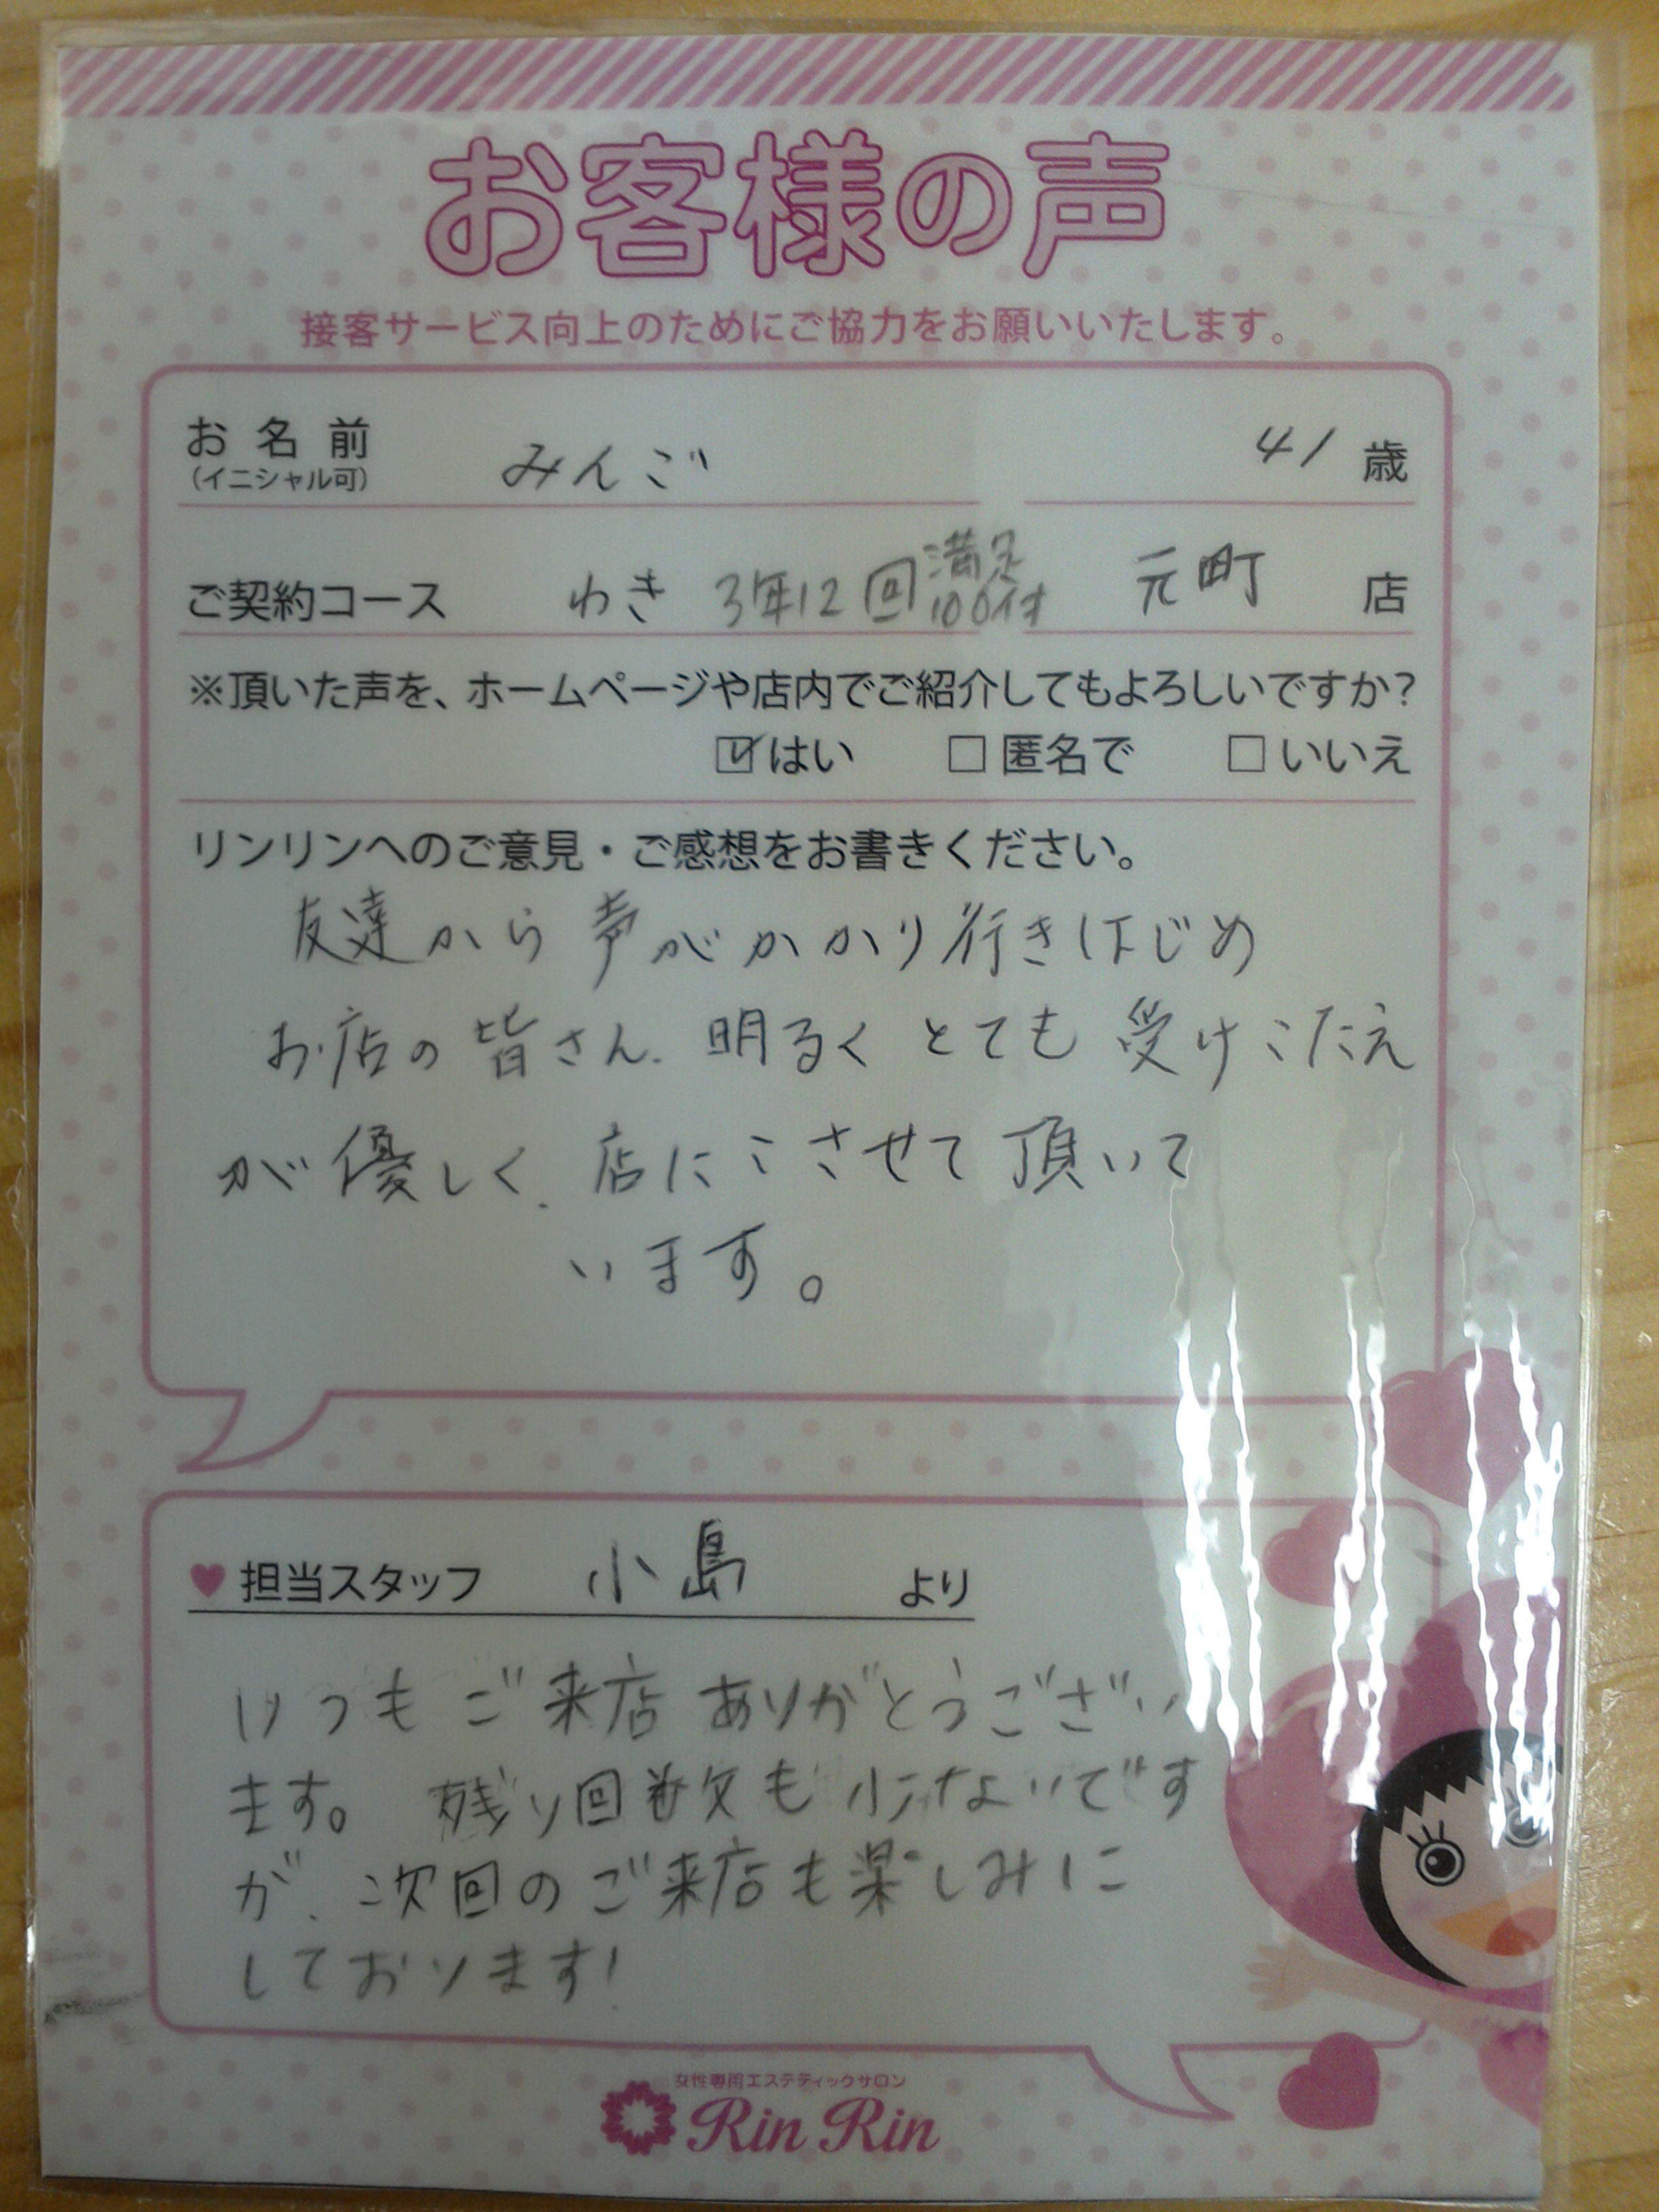 お客様の声
接客サービス向上のためにご協力をお願いいたします。
お名前 みんご 41 歳
(イニシャル可)
ご契約コース わき 3年12回 満足100付 元町 店
※頂いた声を、ホームページや店内でご紹介してもよろしいですか?
☑はい □匿名で □いいえ
リンリンへのご意見・ご感想をお書きください。
友達から声がかかり行きはじめ
お店の皆さん、明るくとても受けこたえ
が優しく、店にこさせて頂いて
います。
♥担当スタッフ 小島 より
いつもご来店ありがとうござい
ます。残り回数も少ないです
が、次回のご来店も楽しみに
しております!
女性専用エステティックサロン
Rin Rin